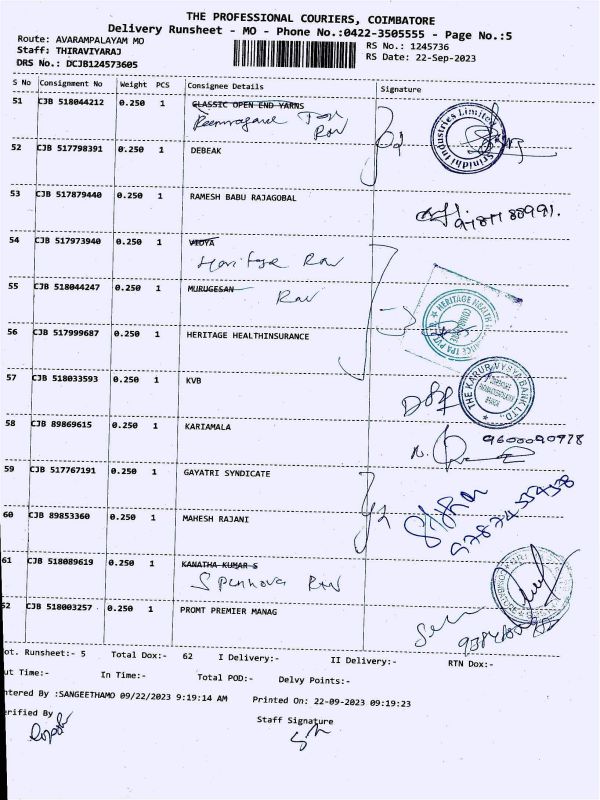 THE PROFESSIONAL COURIERS, COIMBATORE
Delivery Runsheet - MO - Phone No.:0422-3505555 - Page No.:5
Route: AVARAMPALAYAM MO
RS No.: 1245736
Staff: THIRAVIYARAJ
RS Date: 22-Sep-2023
DRS No.: DCJB124573605
S No Consignment No Weight PCS Consignee Details Signature
51 CJB 518044212 0.250 1 CLASSIC OPEN END YARNS
52 CJB 517798391 0.250 1 DEBEAK
Srinidhi Industries Limited
53 CJB 517879440 0.250 1 RAMESH BABU RAJAGOBAL
54 CJB 517973940 0.250 1 VIDYA
Heritage Rav
55 CJB 518044247 0.250 1 MURUGESAN
Rav
HERITAGE HEALTH
56 CJB 517999687 0.250 1 HERITAGE HEALTHINSURANCE
57 CJB 518033593 0.250 1 KVB
THE KARUR VYSYA BANK LTD.
58 CJB 89869615 0.250 1 KARIAMALA
9600090978
59 CJB 517767191 0.250 1 GAYATRI SYNDICATE
60 CJB 89853360 0.250 1 MAHESH RAJANI
61 CJB 518089619 0.250 1 KANATHA KUMAR S
52 CJB 518003257 0.250 1 PROMT PREMIER MANAG
ot. Runsheet:- 5 Total Dox:- 62 I Delivery:- II Delivery:- RTN Dox:-
ut Time:- In Time:- Total POD:- Delvy Points:-
ntered By :SANGEETHAMO 09/22/2023 9:19:14 AM Printed On: 22-09-2023 09:19:23
erified By
Staff Signature